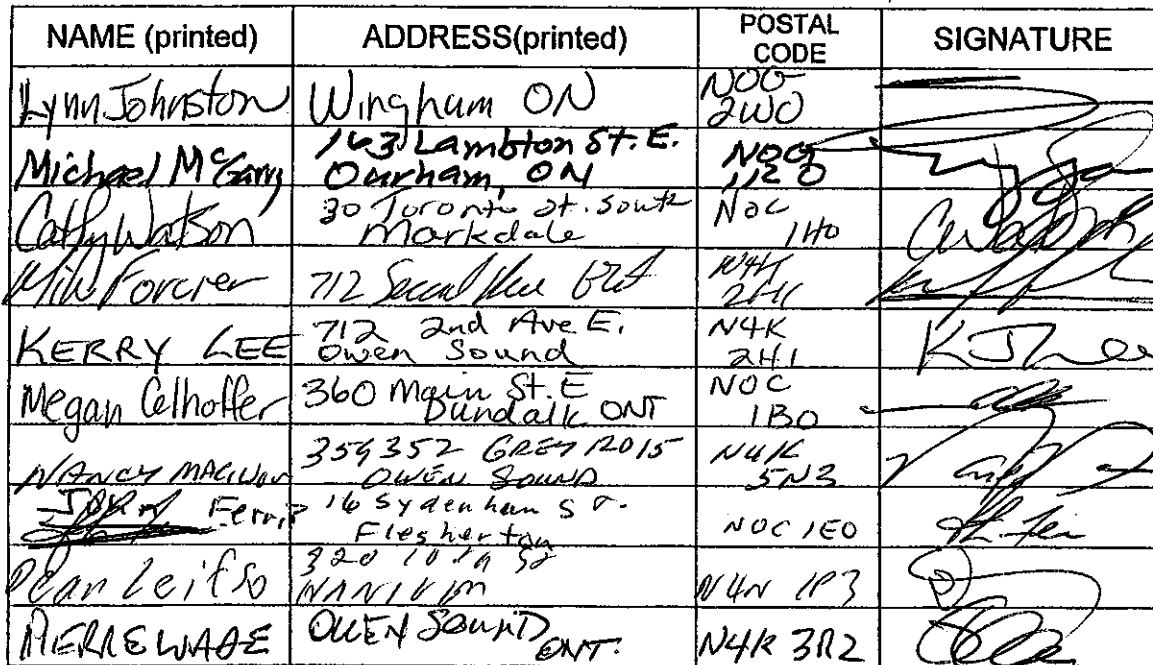 NAME (printed) ADDRESS(printed) POSTAL CODE SIGNATURE
Lynn Johnston Wingham ON N0G 2W0
Michael McGarry 163 Lambton St. E. Durham, ON N0G 1R0
Cathy Watson 30 Toronto St. South Markdale N0C 1H0
Forcier 712 Second Ave N4K 2H1
KERRY LEE 712 2nd Ave E. Owen Sound N4K 2H1
Megan Celhoffer 360 Main St. E Dundalk ONT N0C 1B0
NANCY 359352 GREY RD 15 OWEN SOUND N4K 5N3
Ferris 16 Sydenham St. Flesherton N0C 1E0
Dean Leifso 320 N4N 1P3
PIERRE WADE OWEN SOUND ONT. N4K 3R2